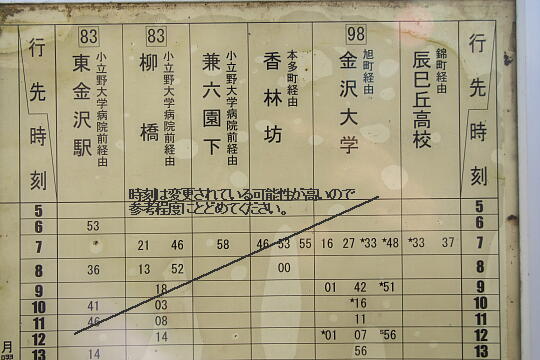 行先 83 83 98 行先
東金沢駅 小立野大学病院前経由
柳橋 小立野大学病院前経由
兼六園下 小立野大学病院前経由
香林坊 本多町経由
金沢大学 旭町経由
辰巳丘高校 錦町経由
時刻 時刻
時刻は変更されている可能性が高いので
参考程度にとどめてください。
5 5
6 53 6
7 21 46 58 46 53 55 16 27 *33 *48 *33 37 7
8 36 13 52 00 8
9 18 01 42 *51 9
10 41 03 *16 10
11 46 08 11 11
12 14 *01 07 *56 12
13 14 56 13
月曜